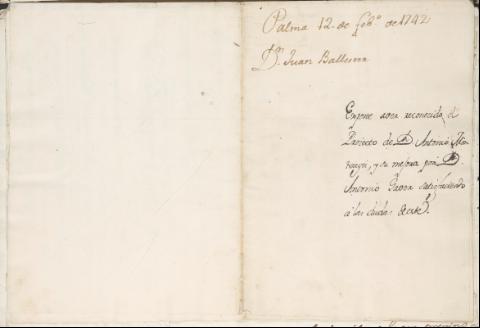 Palma 12 de feb.º de 1742
D.n Juan Ballester
Expone aver reconocido el
Proiecto de D. Antonio
y su mejora por D.
Antonio satisfaciendo
a las dudas